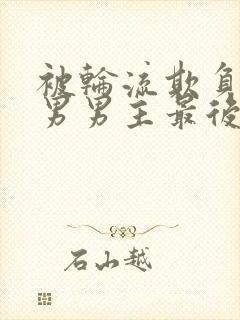 被輪流欺負
男男主最後
石山越